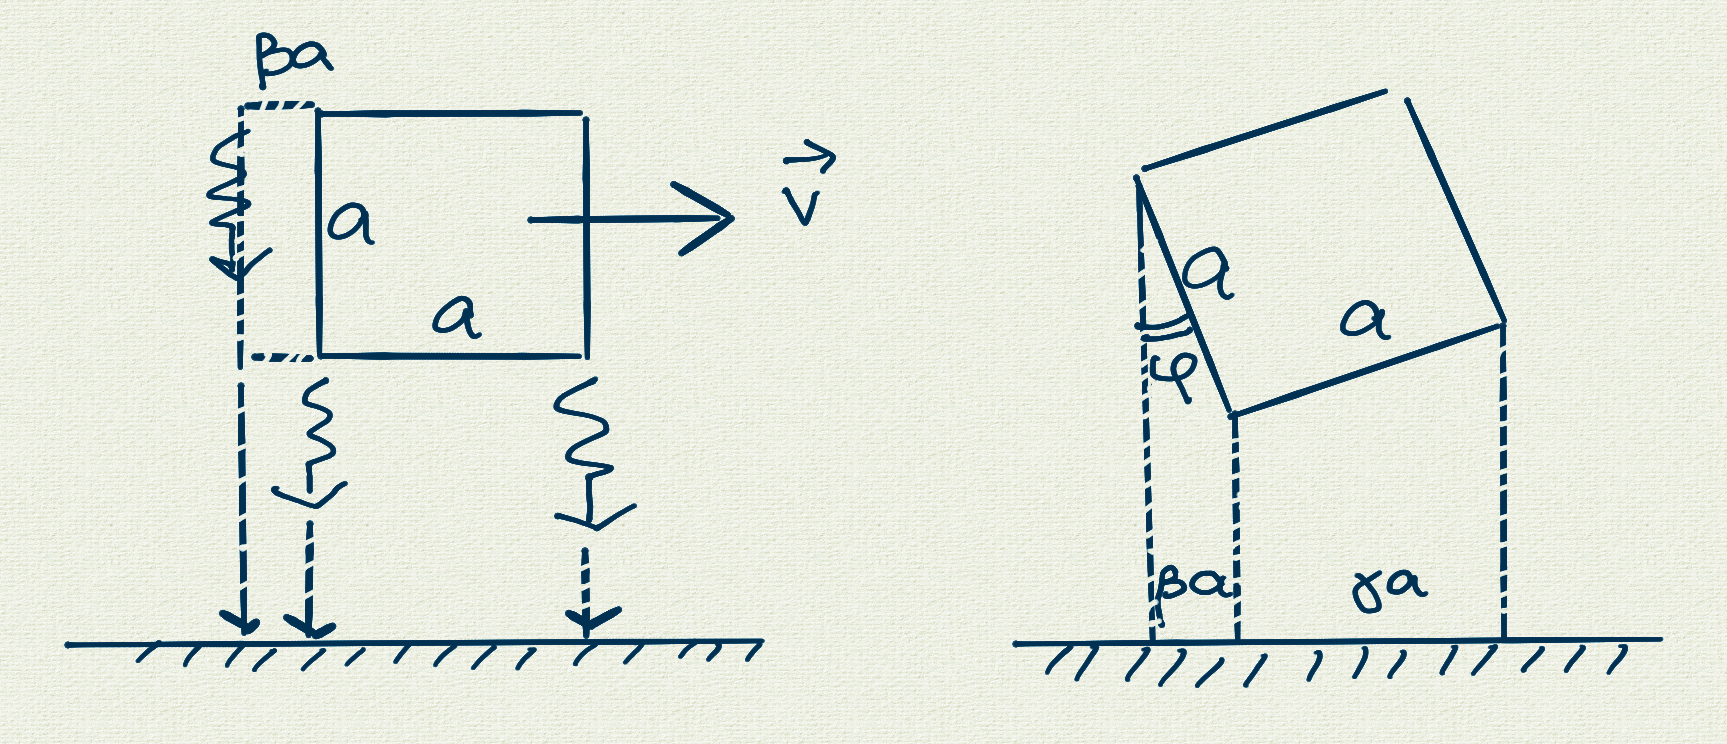 βa
a
a
v
a
a
φ
βa
γa